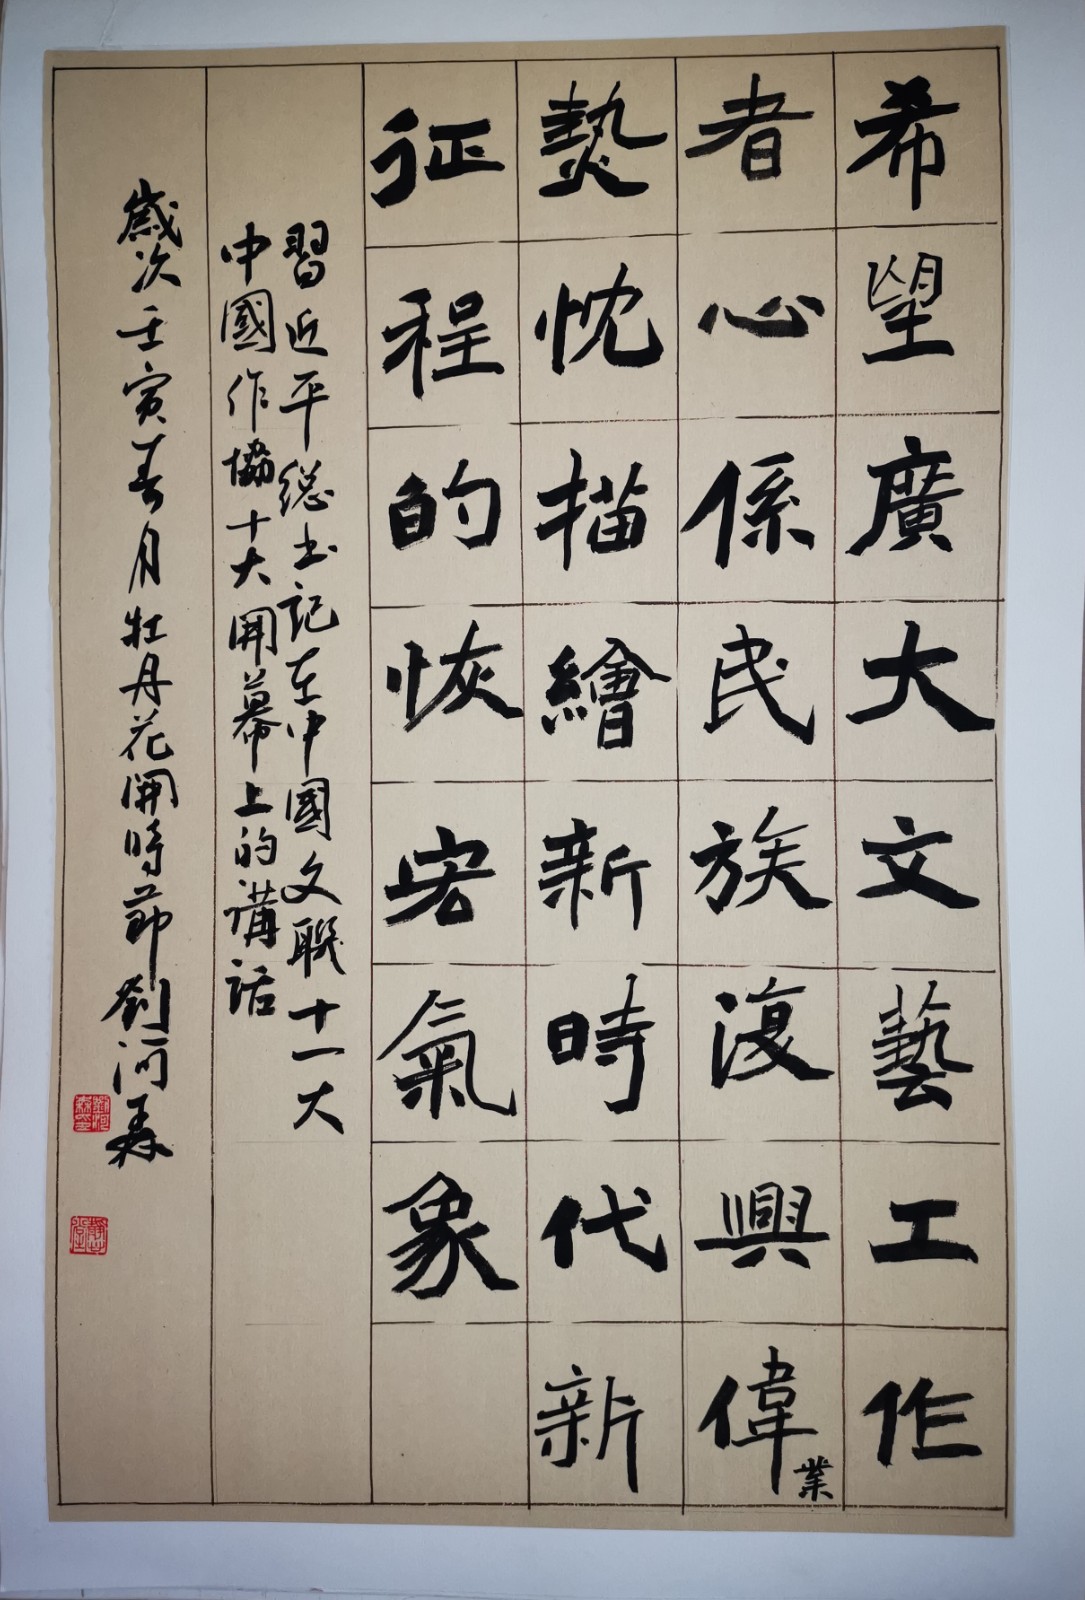 希望廣大文藝工作
者心係民族復興偉業
熱忱描繪新時代新
征程的恢宏氣象
習近平總书記在中國文聯十一大
中國作協十大開幕上的講話
歲次壬寅春月牡丹花開時節劉河森
劉河森印